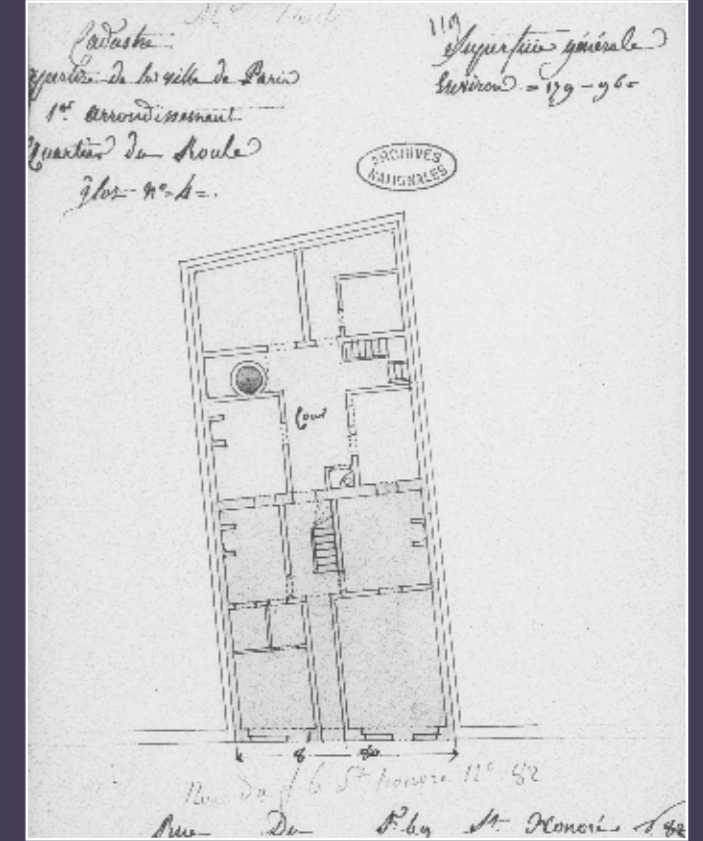 Cadastre
de la ville de Paris
1er arrondissement
Quartier du Roule
Ilot n° 4
119
Superficie générale
Environ = 179 - 960
ARCHIVES
NATIONALES
Cour
8 80
Rue du f b St honoré N° 82
Rue Du F.bg St. Honoré N 82